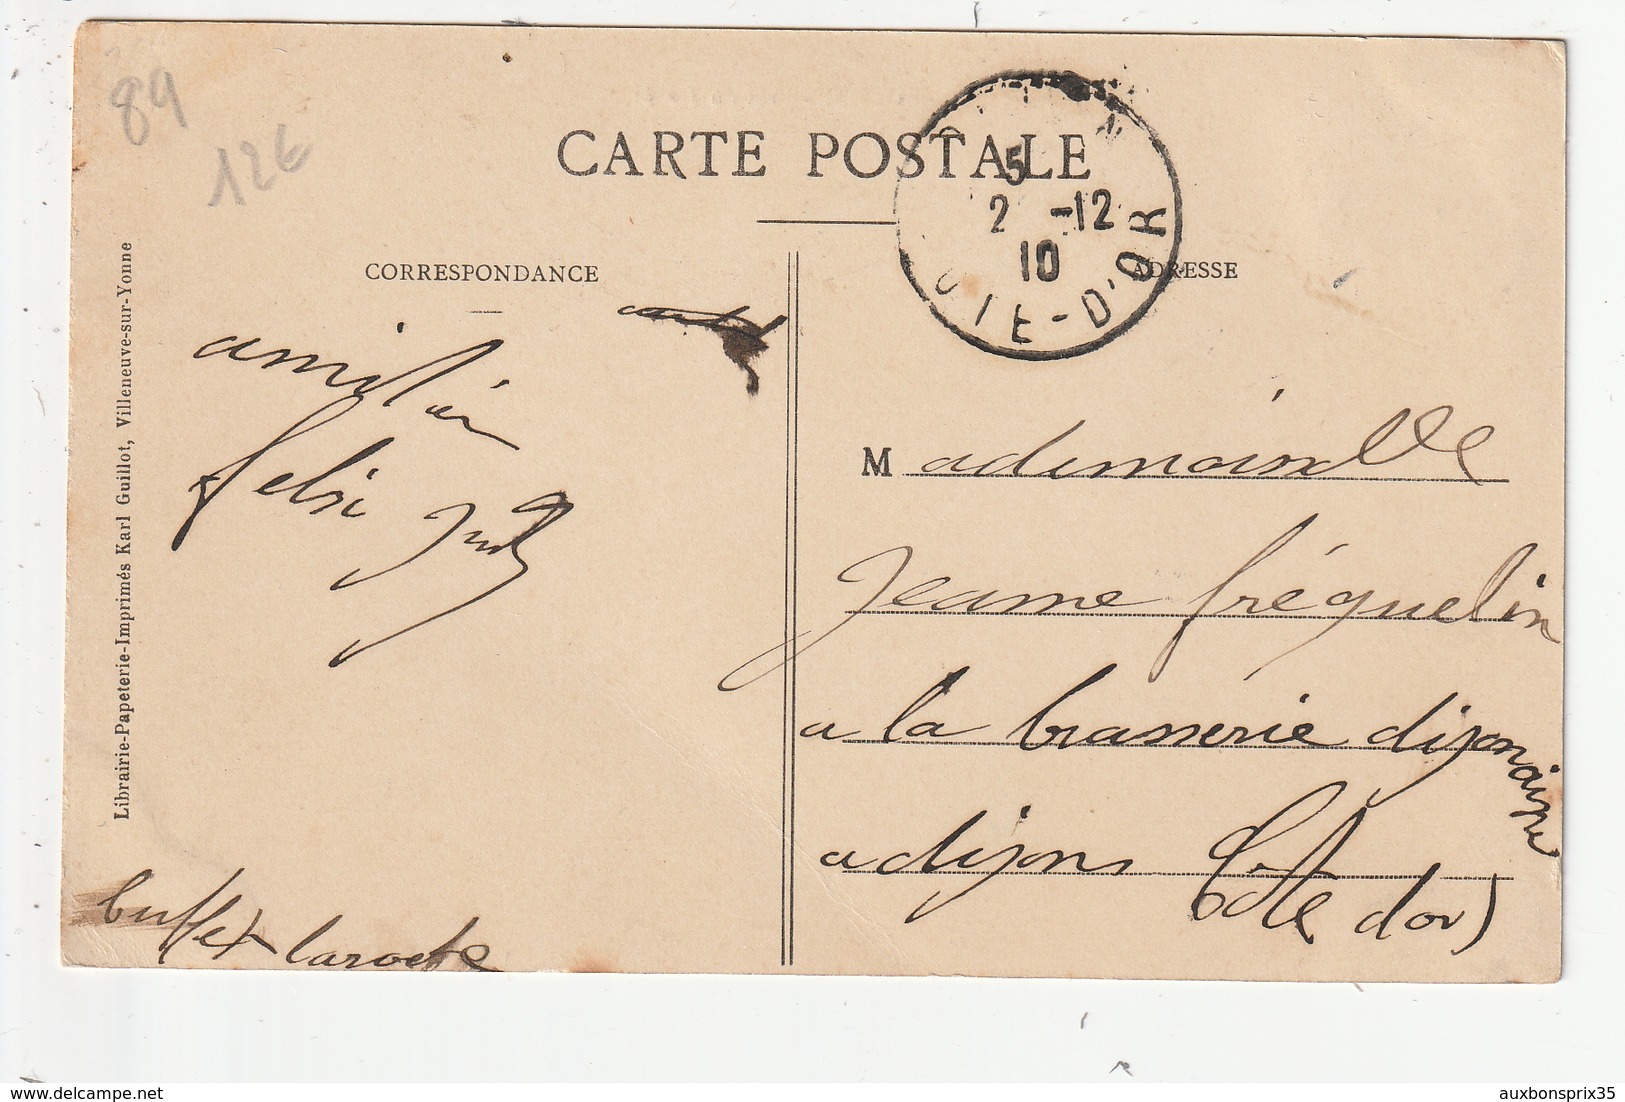 89
12€
CARTE POSTALE
5
2 -12
10
COTE-D'OR
CORRESPONDANCE
ADRESSE
Librairie-Papeterie-Imprimés Karl Guillot, Villeneuve-sur-Yonne
amitié
felix
buffet laroche
Mademoiselle
Jeanne fréquelin
a la brasserie dijonaine
a dijons Côte dor)
auxbonsprix35
delcampe.net